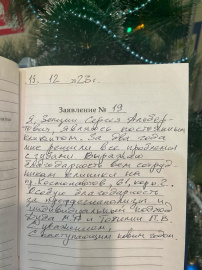 13. 12 2023г.
Заявление № 19
Я, Зенцин Сергей Альбер-
тович, являюсь постоянным
клиентом. За два года
мне решили все проблемы
с зубами. Выражаю
благодарность всем сотруд-
никам клиники на
ул. Космонавтов, 61, корп.
Особую благодарность
за профессионализм и
индивидуальный подход
и
С уважением.
С наступающим новым годом